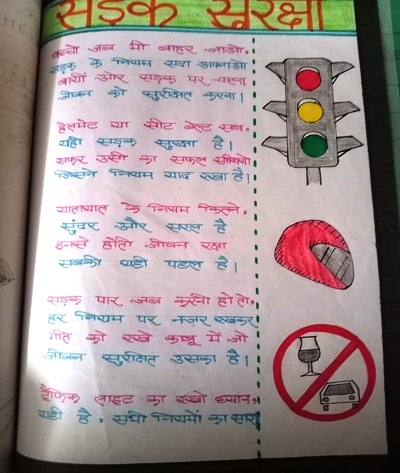 सड़क सुरक्षा
बच्चो जब भी बाहर जाओ,
सड़क के नियम सदा अपनाओ
बायीं ओर सड़क पर चलना
जीवन को सुरक्षित करना।
हेलमेट या सीट बेल्ट सब,
यही सड़क सुरक्षा है।
सफर उसी का सफल
जिसने नियम याद रखा है।
यातायात के नियम कितने,
सुंदर और सरल है
इनसे होती जीवन रक्षा
सबकी यही पहल है।
सड़क पार जब करनी हो तो,
हर नियम पर नजर रखकर
गति को रखे काबू में जो
जीवन सुरक्षित उसका है।
ट्रैफिक लाइट का रखो ध्यान,
यही है, सभी नियमों का सार